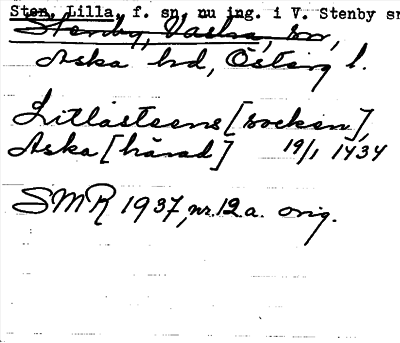 Sten, Lilla, f. sn, nu ing. i V. Stenby sn
Stenby, Västra, sn,
Aska hd, Österg l.
Litlasteens [socken],
Aska [härad] 19/1 1434
SMR 1937, nr. 12 a. orig.